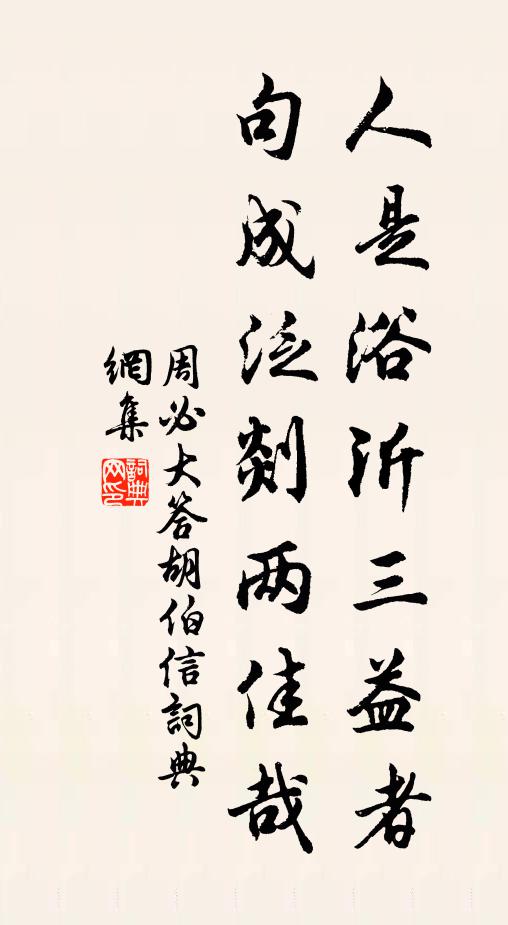 人是浴沂三益者
句成泛剡两佳哉
周必大答胡伯信詞典
網集
詞典網印